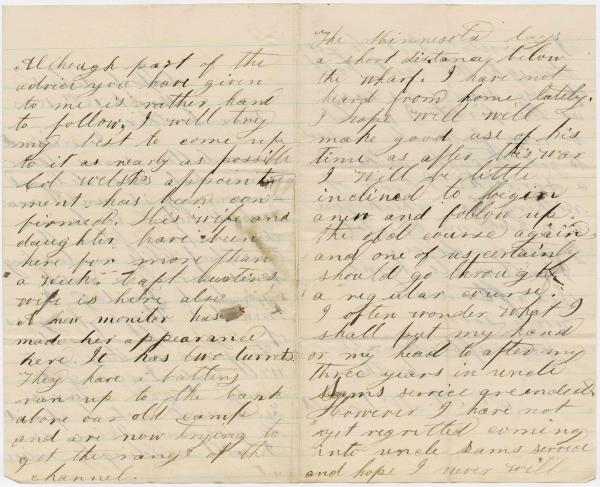 Although part of the
advice you have given
to me is rather hard
to follow, I will try
my best to come up
to it as nearly as possible
Col Welshs appoint
ment has been con-
firmed. His wife and
daughter have been
here for more than
a week. Capt
wife is here also
A new monitor has
made her appearance
here. It has two turrets
They have a battery
run up to the bank
above our old camp
and are now trying to
get the range of the
channel.
The Minnesota lays
a short distance below
the wharf. I have not
heard from home lately.
I hope Will will
make good use of his
time as after this war
I will be little
inclined to begin
anew and follow up
the old course again,
and one of us certainly
should go through
a regular course.
I often wonder what I
shall put my hand
or my head to after my
three years in uncle
sams service are ended.
However I have not
yet regretted coming
into uncle Sams service
and hope I never will